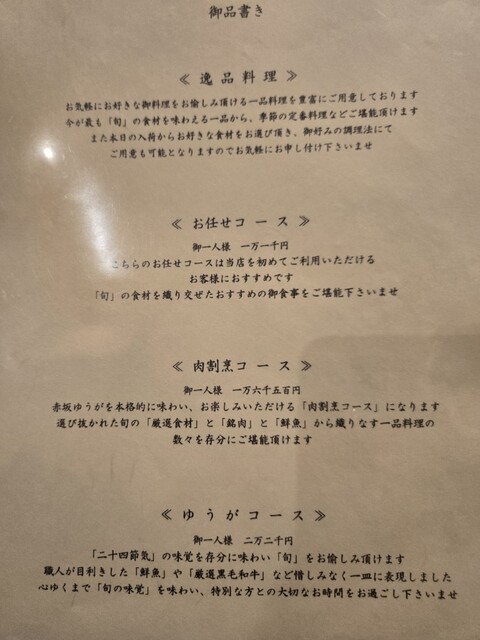 御品書き
≪ 逸品料理 ≫
お気軽にお好きな御料理をお愉しみ頂ける一品料理を豊富にご用意しております
今が最も「旬」の食材を味わえる一品から、季節の定番料理などご堪能頂けます
また本日の入荷からお好きな食材をお選び頂き、御好みの調理法にて
ご用意も可能となりますのでお気軽にお申し付け下さいませ
≪ お任せコース ≫
御一人様 一万一千円
こちらのお任せコースは当店を初めてご利用いただける
お客様におすすめです
「旬」の食材を織り交ぜたおすすめの御食事をご堪能下さいませ
≪ 肉割烹コース ≫
御一人様 一万六千五百円
赤坂ゆうがを本格的に味わい、お楽しみいただける「肉割烹コース」になります
選び抜かれた旬の「厳選食材」と「銘肉」と「鮮魚」から織りなす一品料理の
数々を存分にご堪能頂けます
≪ ゆうがコース ≫
御一人様 二万二千円
「二十四節気」の味覚を存分に味わい「旬」をお愉しみ頂けます
職人が目利きした「鮮魚」や「厳選黒毛和牛」など惜しみなく一皿に表現しました
心ゆくまで「旬の味覚」を味わい、特別な方との大切なお時間をお過ごし下さいませ